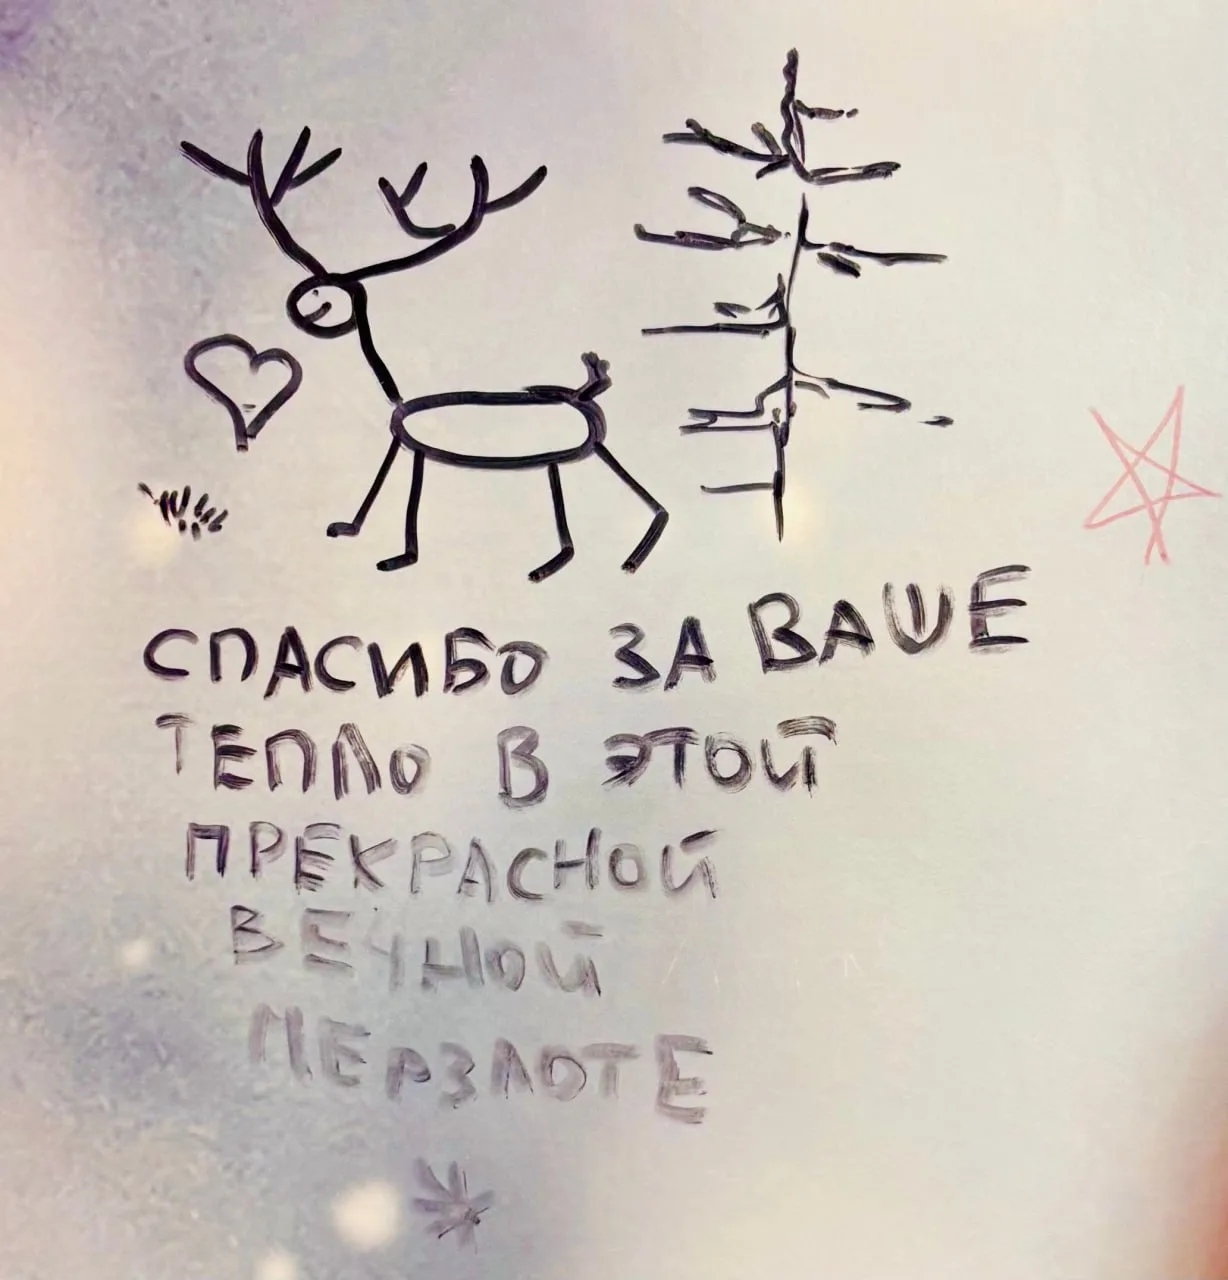 СПАСИБО ЗА ВАШЕ
ТЕПЛО В ЭТОЙ
ПРЕКРАСНОЙ
ВЕЧНОЙ
МЕРЗЛОТЕ